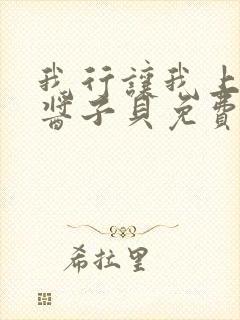 我行讓我上
醬子貝免費
希拉里